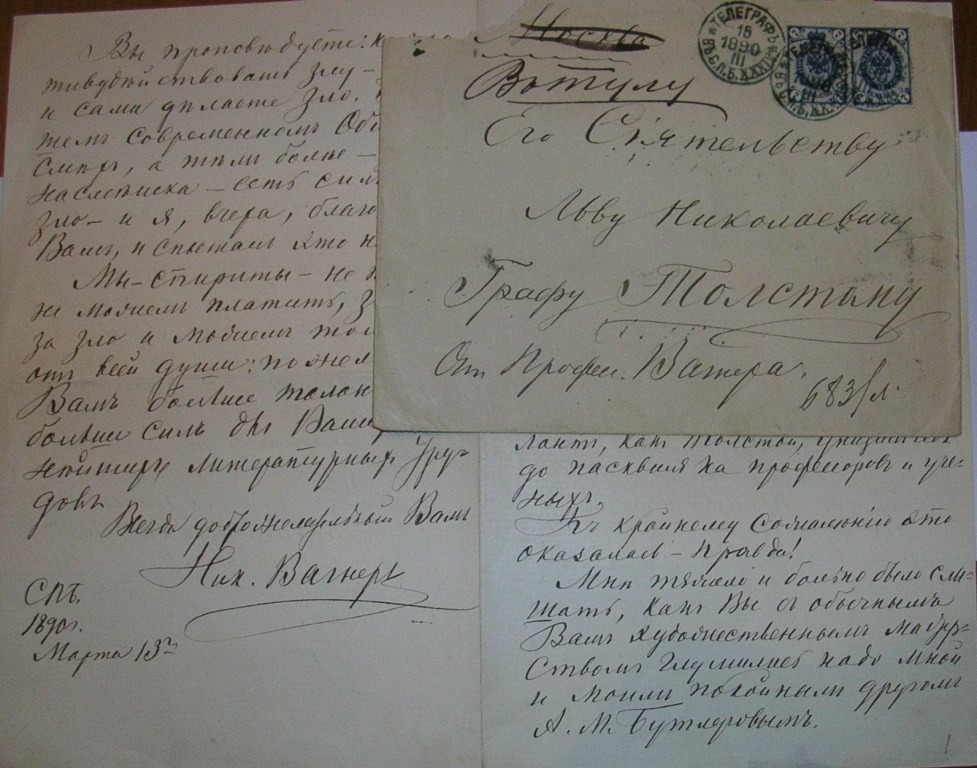 Вы проповѣдуете: н
тивудѣйствовать злу –
и сами дѣлаете зло.
жемъ современномъ Об
Смѣхъ, а тѣмъ болѣе –
насмѣшка – есть сил
зло – и я, вчера, благо
Вамъ, испыталъ это н
Мы – спириты – не
не можемъ платить, з
за зло и можемъ тол
отъ всей души: пожел
Вамъ больше талан
больше силъ для Ваши
литературныхъ Тру-
довъ
Всегда доброжелательный Вамъ
Ник. Вагнеръ
СПБ.
1890 г.
Марта 13го
Москва
ТЕЛЕГРАФЪ
15
1890
III
Его Сіятельству
Льву Николаевичу
Графу Толстому
От Профес. Вагнера.
лантъ, какъ Толстой, унизился
до пасквиля на профессоровъ и уче-
ныхъ.
Къ крайнему Сожалѣнію это
оказалось – правда!
Мнѣ тяжело и больно было слы-
шать, какъ Вы съ обычнымъ
Вамъ художественнымъ мастер-
ствомъ глумились надо мной
и моимъ покойнымъ другомъ
А. М. Бутлеровымъ.